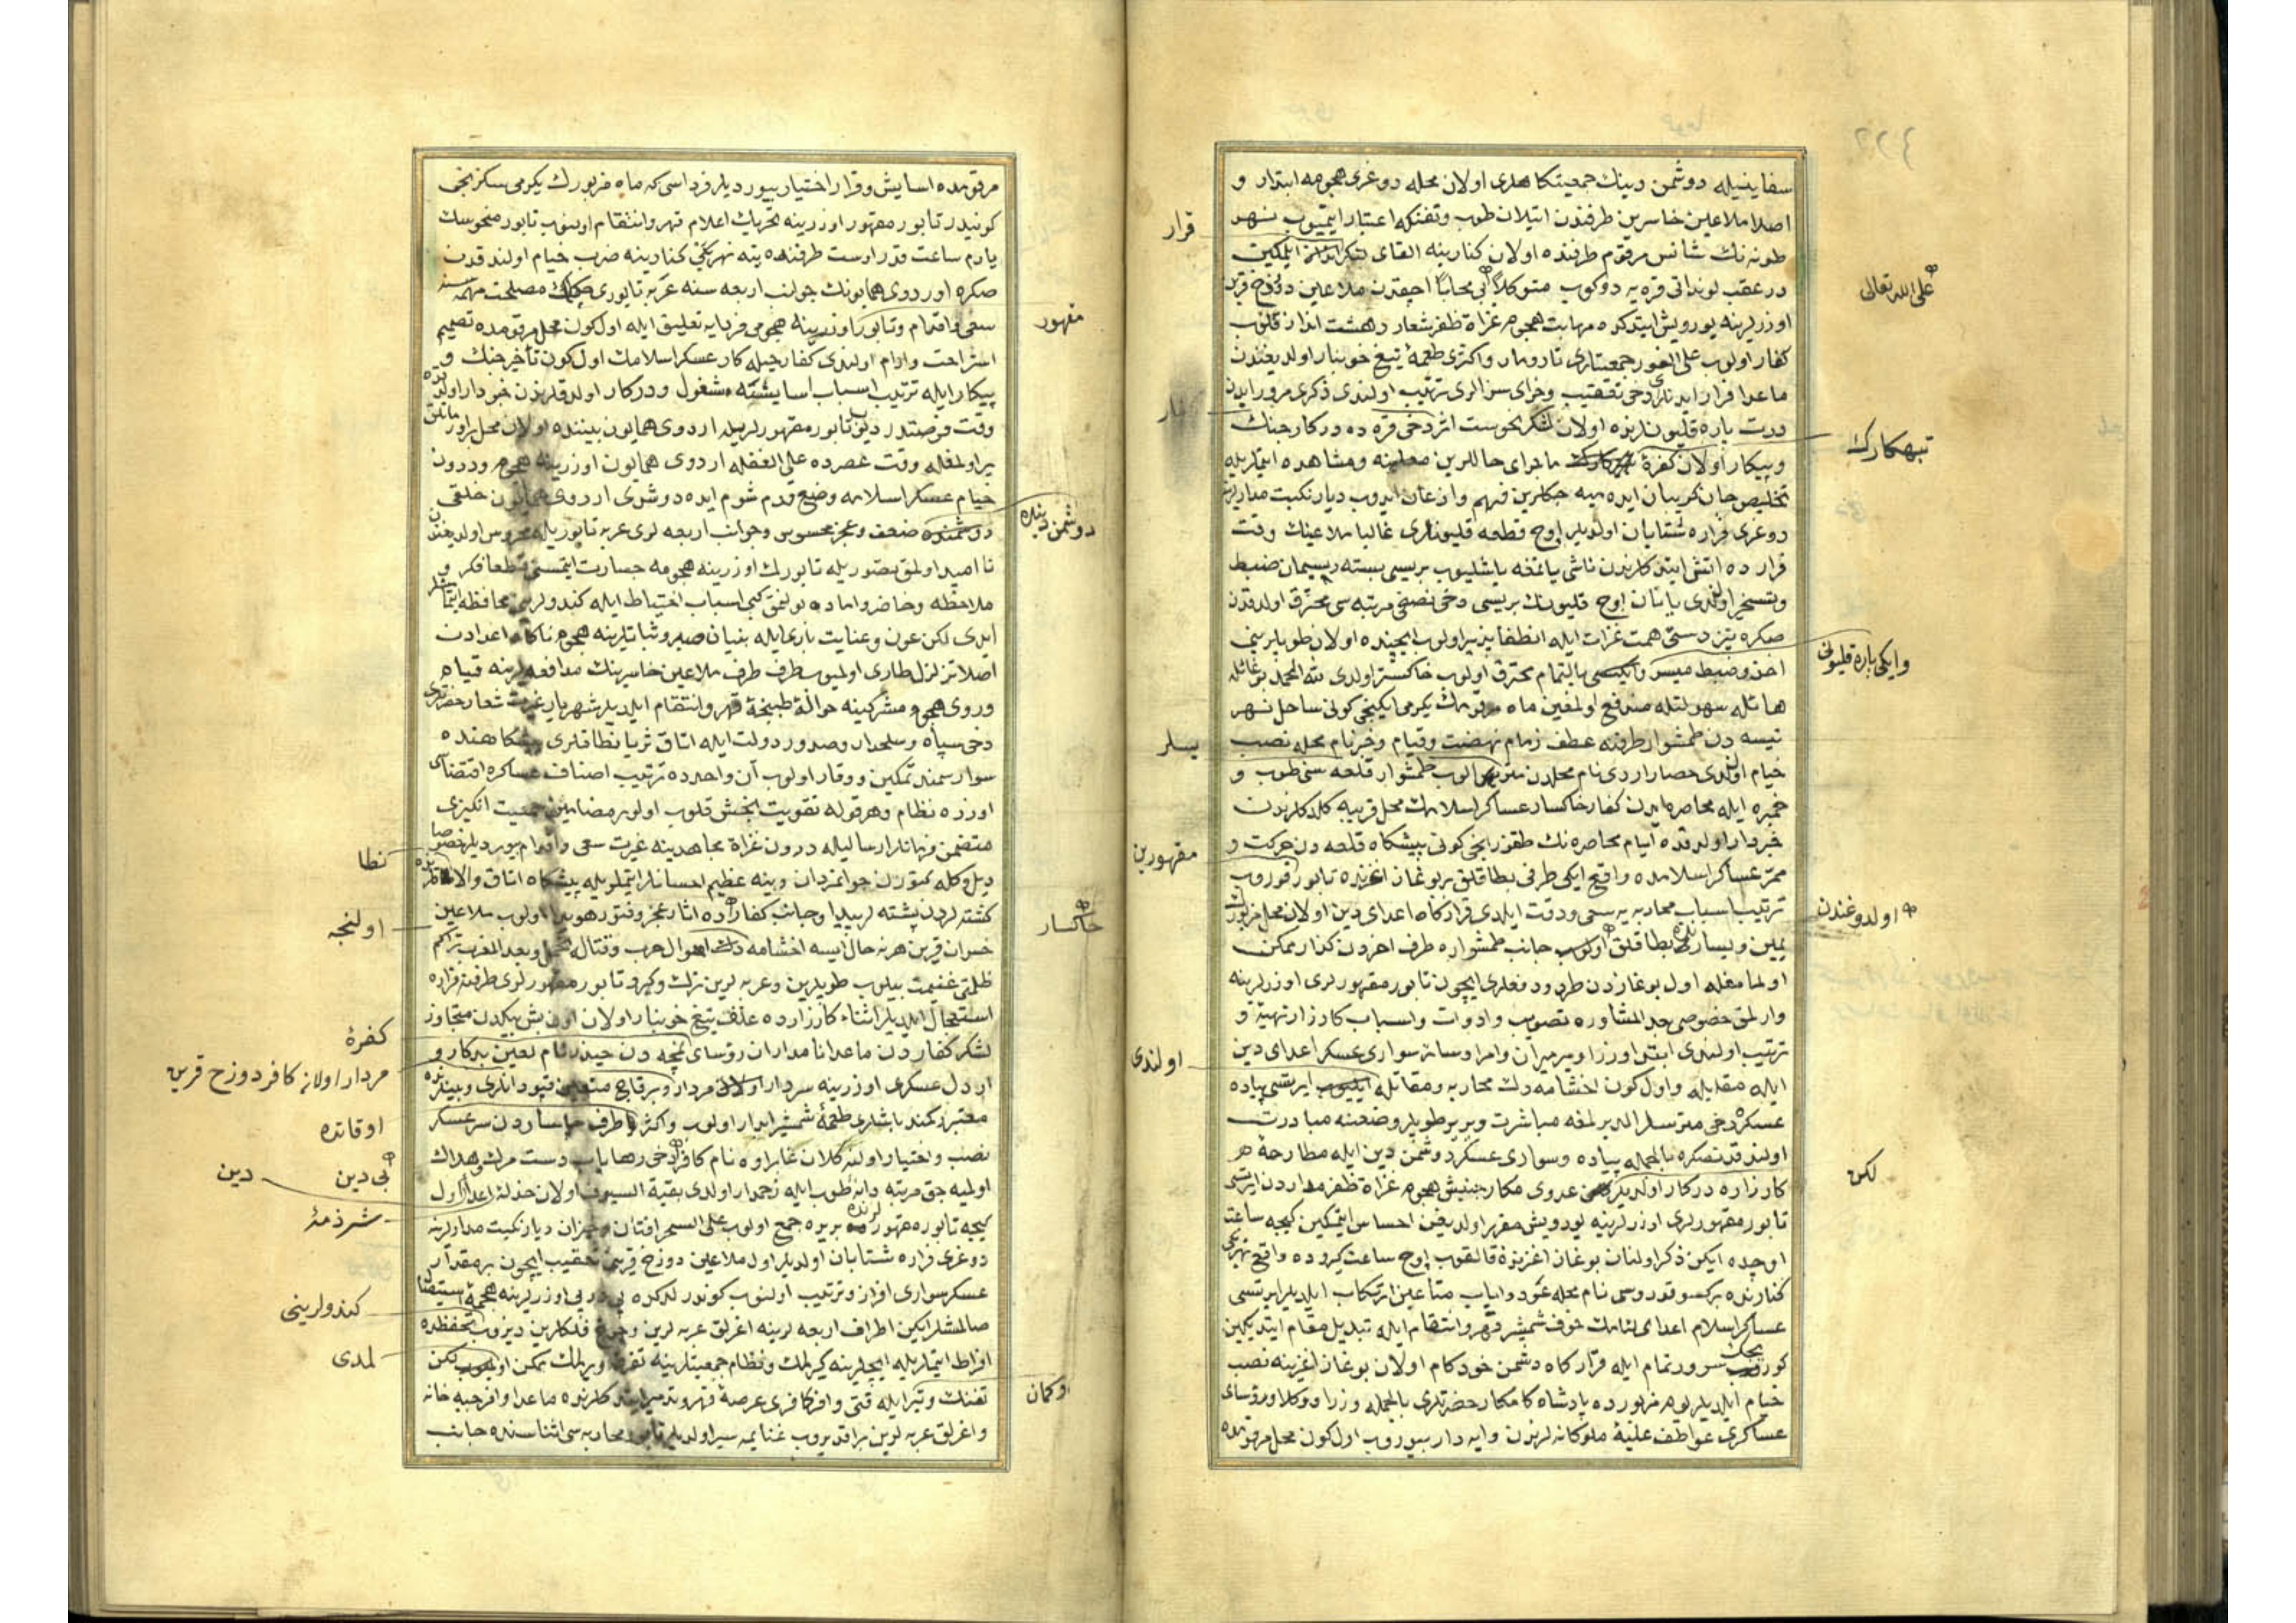 سفاینیله دوشمن دینك جمعیتکاهلری اولان محله دوغری هجومه ابتدار و
اصلا ملاعین خاسرین طرفندن اتیلان طوب وتفنکه اعتبار ایتمیوب نهر
قرار
طونه نك شانس مرقوم طرفنده اولان کنارینه القای لنکر ایلدکین
درعقب لونداتی قره یه دوکوب متوکلاً بی محابا اچیقدن ملاعین دوزخ قرین
على الله تعالى
اوزرلرینه یورویش ایتدکده مهابت هجوم غزاة ظفرشعار دهشت انداز قلوب
کفار اولوب على الفور جمعیتلری تارومار واکثری طعمۀ تیغ خونبار اولدیغندن
ماعدا فرار ایدنلری دخی تعقیب وجزای سزالری ترتیب اولندی ذکری مرور ایدن
درت پاره قلیونلرنده اولان لشکر نحوست اثر دخی قره ده درکار جنك
وپیکار اولان کفرۀ ماجرای حاللرین معاینه ومشاهده ایتمالریله
تبهکارك
تخلیص جان کریبان ایده میه جکلرین فهم واذعان ایدوب دیار نکبت مدارلرینه
دوغری فراره شتابان اولدیلر اوچ قطعه قلیونلری غالبا ملاعینك وقت
فرار ده اتش ایتدکلرندن ناشی یانمغه باشلیوب بریسی بسته ریسمان ضبط
وتسخیر اولندی یانان اوچ قلیونك بریسی دخی نصفی مرتبه سی محترق اولدقدن
صکره تیز دستی همت غزات ایله انطفا پذیر اولوب ایچنده اولان طوپلرینی
وایکی پاره قلیونی
اخذ وضبط میسر بالتمام محترق اولوب خاکستر اولدی لله الحمد بو غائلۀ
هائله سهولتله مندفع اولمغین ماه مزبورك یکرمی ایکنجی کونی ساحل نهر
تیسه دن طمشوار طرفنه عطف زمام نهضت وقیام وخرنام محله نصب
یسلر
خیام اولندی حصار اردی نام محلدن طمشوار قلعه سنی طوب و
خمبره ایله محاصره ایدن کفار خاکسار عساکر اسلامك محل قریبه کلدکلرندن
خبردار اولدقده ایام محاصره نك طقوزنجی کونی پیشکاه قلعه دن حرکت و
مقهورین
ممر عساکر اسلامده واقع ایکی طرفی بطاقلق بر بوغاز اغزنده تابور قوروب
ترتیب اسباب محاربه یه سعی ودقت ایلدی قرارکاه اعدای دین اولان محل مزبورك
اولدوغندن
یمین ویساری بطاقلق جانب طمشواره طرف اخردن کذار ممکن
اولمامغله اول بوغازدن طرد ودفعلری ایچون تابور مقهورلری اوزرلرینه
وارلمق خصوصی بعد المشاوره تصویب وادوات واسباب کارزار تهیه و
ترتیب اولندی ابتدا وزرا ومیرمیران وامرا وسائر سواری عسکر اعدای دین
اولندی
ایله مقابله واول کون اخشامه دك محاربه ومقاتله ایرتسی پیاده
عسکرك دخی متریسلر الدیرلمغه مباشرت ویریر طوپلر وضعنه مبادرت
اولندقدنصکره بالجمله پیاده وسواری عسکر دشمن دین ایله مطارحۀ هر
کارزاره درکار اولدیلر عدوی مکار جنبش هجوم غزاة ظفرمداردن ایرتسی
لکن
تابور مقهورلری اوزرلرینه یورویش مقرر اولدیغن احساس ایتمکین کیجه ساعت
اوچده ایکن ذکر اولنان بوغاز اغزنده قالقوب اوچ ساعت کیروده واقع نهر بکی
کنارنده نام محله ارتکاب ایلدیلر ایرتسی
عساکر اسلام اعدای لئامك خوف شمشیر قهر وانتقام ایله تبدیل مقام ایتدیکین
کوریجك سرور تمام ایله قرارکاه دشمن خودکام اولان بوغاز اغزینه نصب
خیام ایلدیلر یوم مزبورده پادشاه کامکار حضرتلری بالجمله وزرا ووکلا ورؤسای
عساکری عواطف علیۀ ملوکانه لرندن وایه دار بیوروب اول کون محل مرقومده
مرقومده اسایش وقرار اختیار بیوردیلر فرداسی که ماه مزبورك یکرمی سکزنجی
کونیدر تابور مقهور اوزرینه تحریك اعلام قهر وانتقام اولنوب تابور منحوسك
یارم ساعت قدر اوست طرفنده ینه نهر بکی کنارینه ضرب خیام اولندقدن
صکره اوردوی همایونك جوانب اربعه سنه عربه تابوری مصلحت مهمه سنه
سعی واقدام وتابور اوزرینه هجومی فردایه تعلیق ایله اول کون محل مرقومده تصمیم
مقهور
استراحت وارام اولندی کفار حیله کار عسکر اسلامك اول کون تأخیر جنك و
پیکار ایله ترتیب اسباب اسایشته مشغول ودرکار اولدقلرندن خبردار اولدقده
وقت فرصتدر دیو تابور مقهورلریله اردوی همایون بیننده اولان محل
یر اولمغله وقت عصرده على الغفله اردوی همایون اوزرینه هجوم ودرون
خیام عسکر اسلامه وضع قدم شوم ایده دوشدی اردوی همایون خلقی
دوشمن دینده
ضعف وعجز محسوس وجوانب اربعه لری عربه تابوریله محروس اولدیغندن
نا امید اولمق تصوریله تابورك اوزرینه هجومه جسارت ایتمسنی قطعا فکر و
ملاحظه وحاضر واماده بولنمق کبی اسباب احتیاط ایله کندولرینی محافظه ایتمامشلر
ایدی لکن عون وعنایت باری ایله بنیان صبر وثباتلرینه هجوم ناکاه اعدادن
اصلا تزلزل طاری اولمیوب طرف طرف ملاعین خاسرینك مدافعه لرینه قیام
وروی هجوم مشرکینه حوالۀ طپنجۀ قهر وانتقام ایلدیلر شهریار غیرت شعار حضرتلری
دخی سپاه وسلحدار وصدور دولت ایله اتاق ثریا نطاقلری پیشکاهنده
سوار سمند تمکین ووقار اولوب آن واحدده ترتیب اصناف عساکره اقتضاسی
اوزره نظام وهر قوله تقویت بخش قلوب اولور مضامین جمعیت انکیزی
متضمن فرمانلر ارسالیله درون غزاة مجاهدینه غیرت سعی واقدام بیوردیلر خصوصا
نطا
دیل وکله کتورن جوانمردان دینه عظیم احسانلر ایتملریله پیشکاه اتاق والالرنده
کشته لردن پشته لر پیدا وجانب کفارده اثار عجز وفتور هویدا اولوب ملاعین
خاکسار
اولنجه
خسران قرین هر نه حال ایسه اخشامه دك اهوال حرب وقتاله تحمل وبعد المغرب تراکم
ظلمتی غنیمت بیلوب طوپلرین وعربه لرین ترك وکیرو تابور مقهورلری طرفنه فراره
استعجال ایلدیلر اثناء کارزارده علف تیغ خونبار اولان اون بش بیکدن متجاوز
کفرۀ
لشکر کفاردن ماعدا نامداران رؤسای نمچه دن جندرنام لعین بدکار و
مردار اولانه کافر دوزخ قرین
اردل عسکری اوزرینه سردار مردار وبر قاچ متعین قپودانلری وبیکلرنده
معتبر کمند باشلری طعمۀ شمشیر ابدار اولوب واکثر طرف چاساردن سرعسکر
اوقاتده
نصب واختیار اولنه کلان غابراره نام کافر دخی رهایاب دست مرك وهلاك
بی دین
دین
اولمیه جق مرتبه دانۀ طوب ایله زخمدار اولدی بقیة السیوف اولان خذلۀ اعدا اول
شرذمۀ
کیجه تابوره مقهورلرنده بریره جمع اولوب على السحر افتان وخیزان دیار نکبت مدارلرینه
دوغری فراره شتابان اولدیلر اول ملاعین دوزخ قرینی تعقیب ایچون بر مقدار
عسکر سواری افراز وترتیب اولنوب کوندرلدکده پی درپی اوزرلرینه هجمۀ استیقنا
کندولرینی
صالمشلر ایکن اطراف اربعه لرینه اغرلق عربه لرین وچرخ فلکلرین دیزوب تحفظده
افراط ایتملریله ایچلرینه کیرلمك ونظام جمعیتلرینه تفرقه ویرلمك ممکن لکن
لمدی
تفنك وتیر ایله قتی وافر کافری عرصۀ قهر وتدمیر ایتدکلرنده ماعدا وافر جبه خانه
اوکمان
واغرلق عربه لرین براقدیروب غنایمه سیر اولدیلر تابور محاربه سی اثناسنده جانب